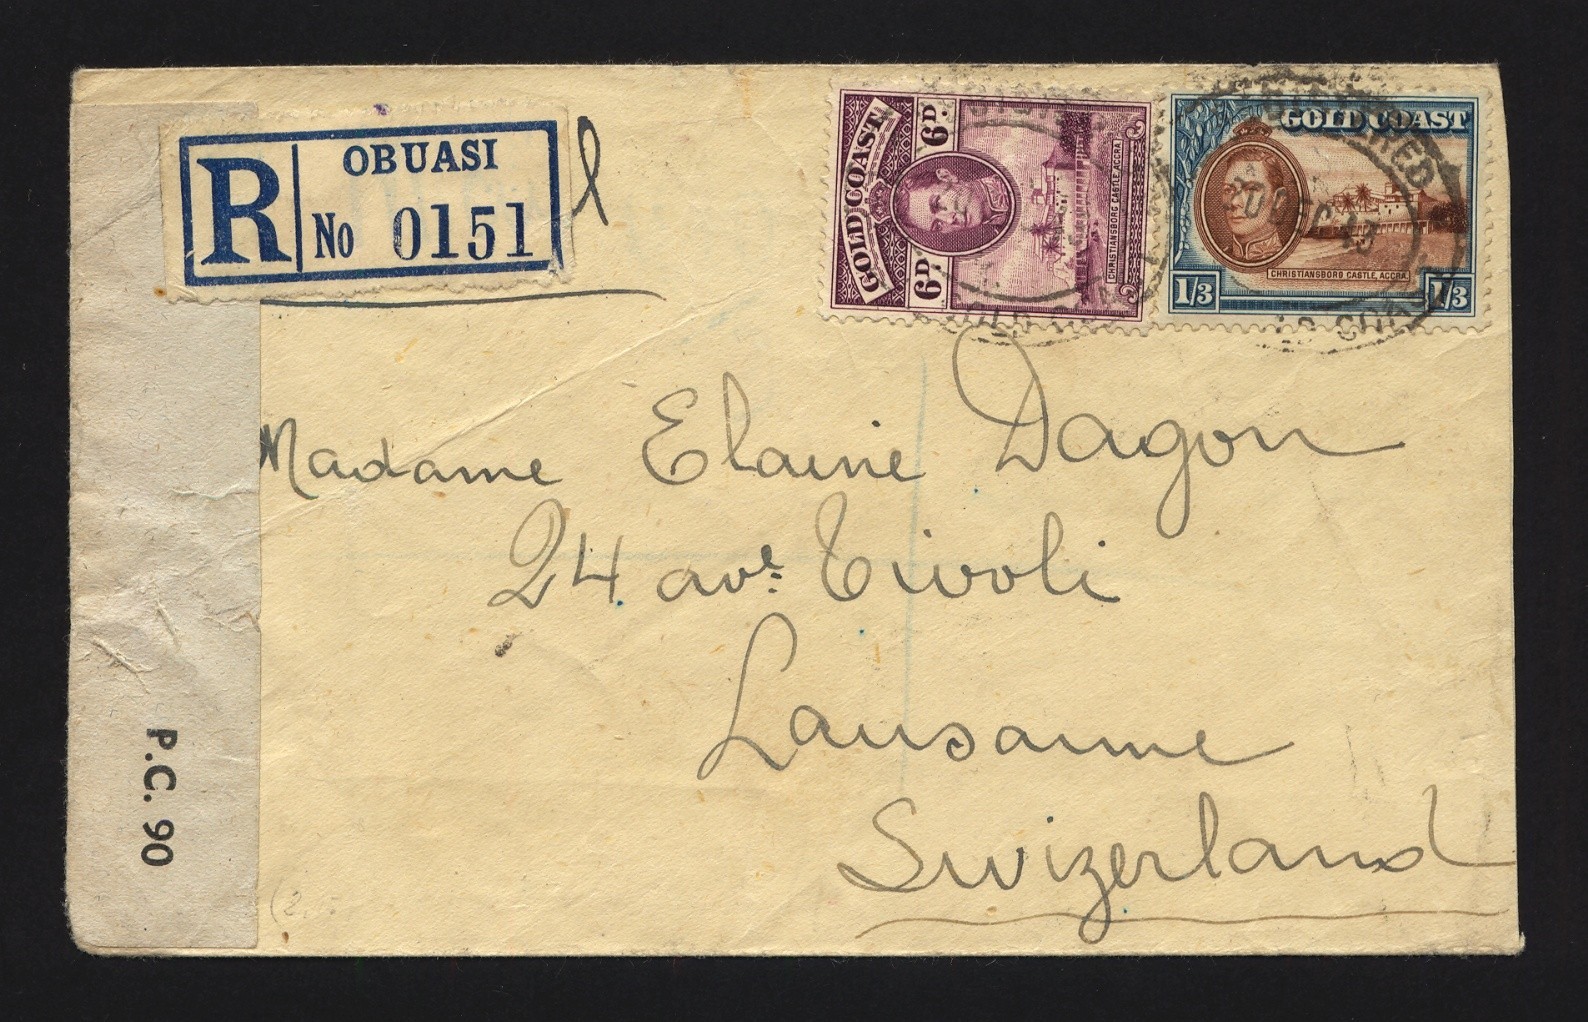 R
OBUASI
No 0151
GOLD COAST
6D.
6D.
CHRISTIANSBORG CASTLE, ACCRA
GOLD COAST
CHRISTIANSBORG CASTLE, ACCRA.
1/3
1/3
Madame Elaine Dagon
24 ave. Tivoli
Lausanne
Switzerland
P.C. 90